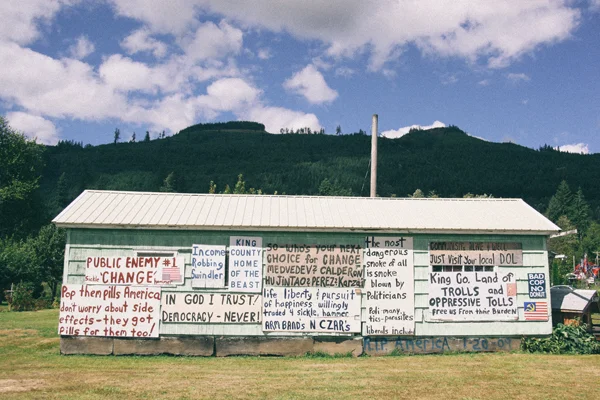 PUBLIC ENEMY #1
"CHANGE"
Pop them pills America
don't worry about side
effects-they got
pills for them too!
Income
Robbing
Swindler
KING
COUNTY
HOME OF
THE
BEAST
IN GOD I TRUST/
DEMOCRACY-NEVER!
SO-WHO'S YOUR NEXT
CHOICE for CHANGE
MEDVEDEV? CALDERON
HU JINTAO? PEREZ? KARZAI?
life liberty & pursuit
of happiness willingly
traded 4 sickle, hammer
ARM BANDS N CZAR'S
the most
dangerous
smoke of all
is smoke
blown by
Politicians
Poli-many
tics-parasites
liberals included
COMMUNISM ALIVE & WELL
JUST VISIT YOUR local DOL
King Co. Land of
TROLLS and
OPPRESSIVE TOLLS
Free us from their Burden
BAD
COP
NO
DONUT
RIP AMERICA 1-20-09